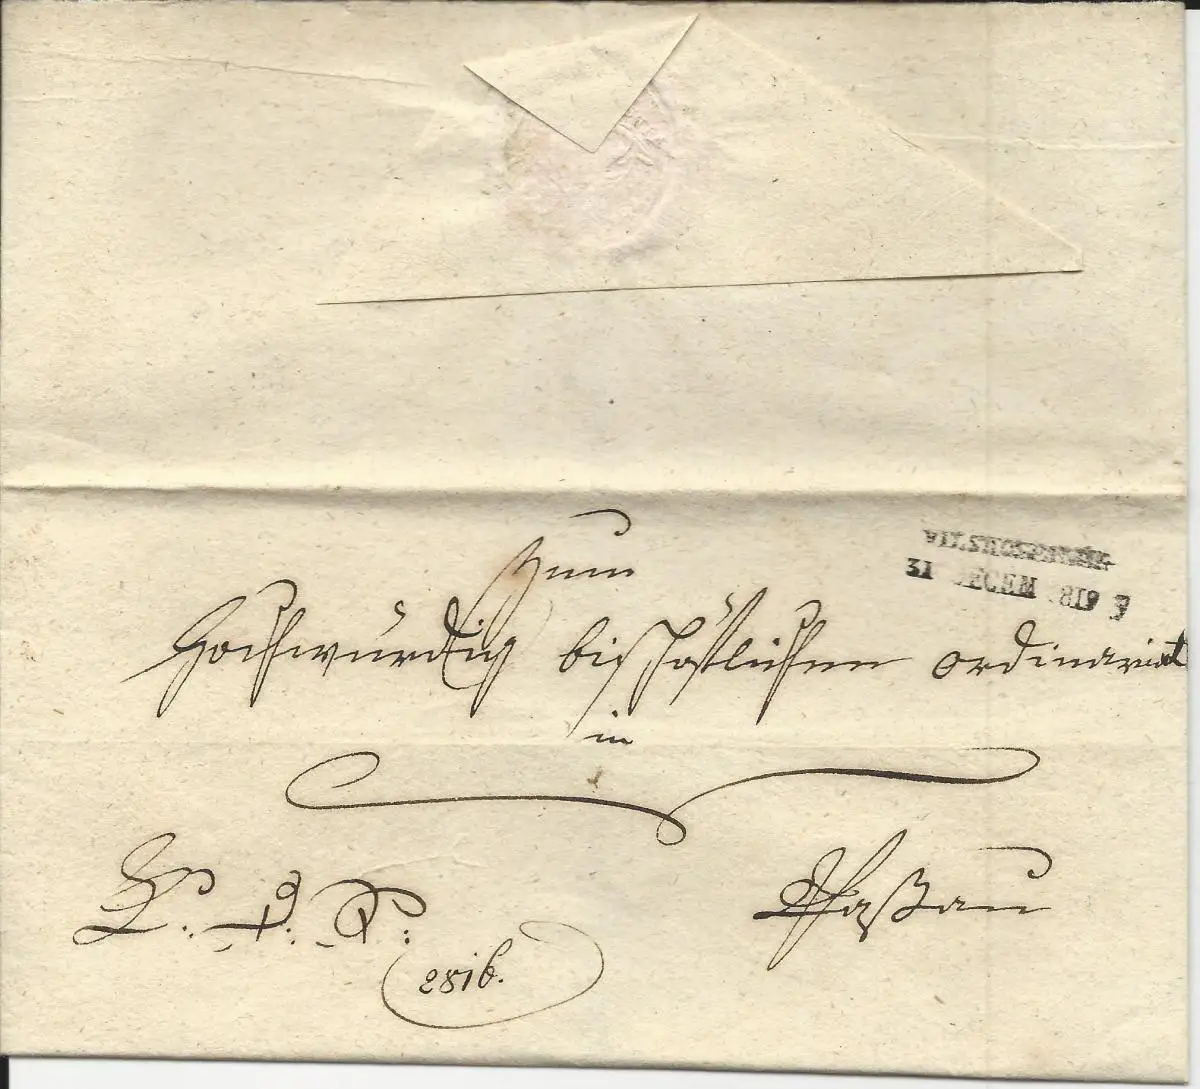 VILSHOFEN
31 DECEM 1819
Zum
Hochwürdig bischöflichen Ordinariat
in
Paßau
2816.